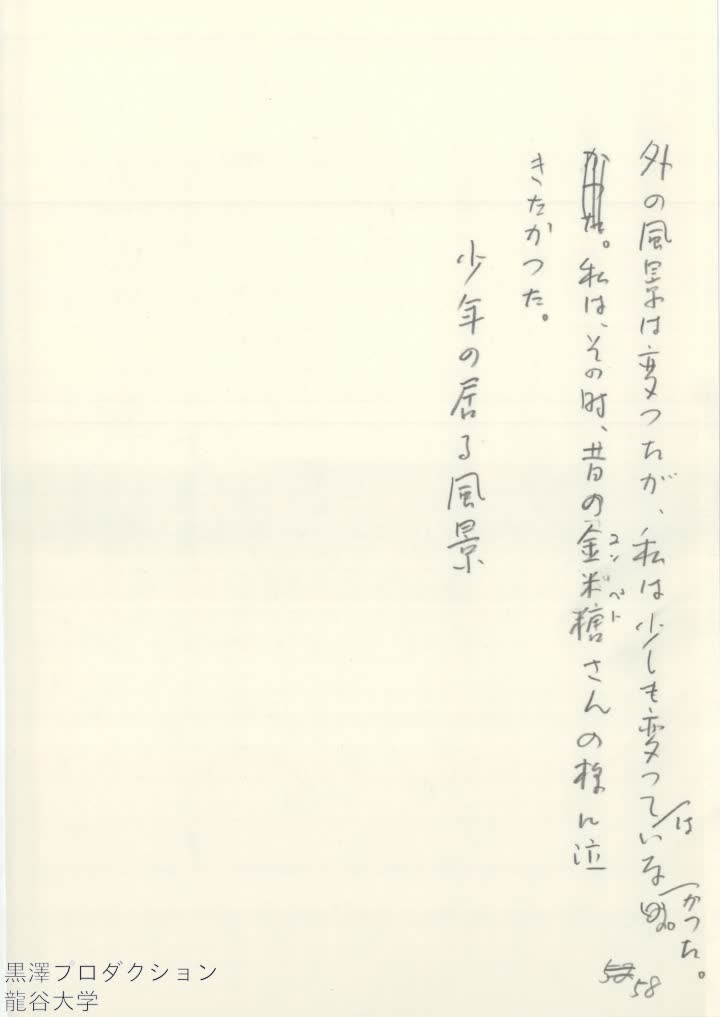 外の風景は変つたが、私は少しも変つてはいなかつた。
私は、その時、昔の金米糖さんの様に泣
コンペト
きたかつた。
少年の居る風景
58
黒澤プロダクション
龍谷大学